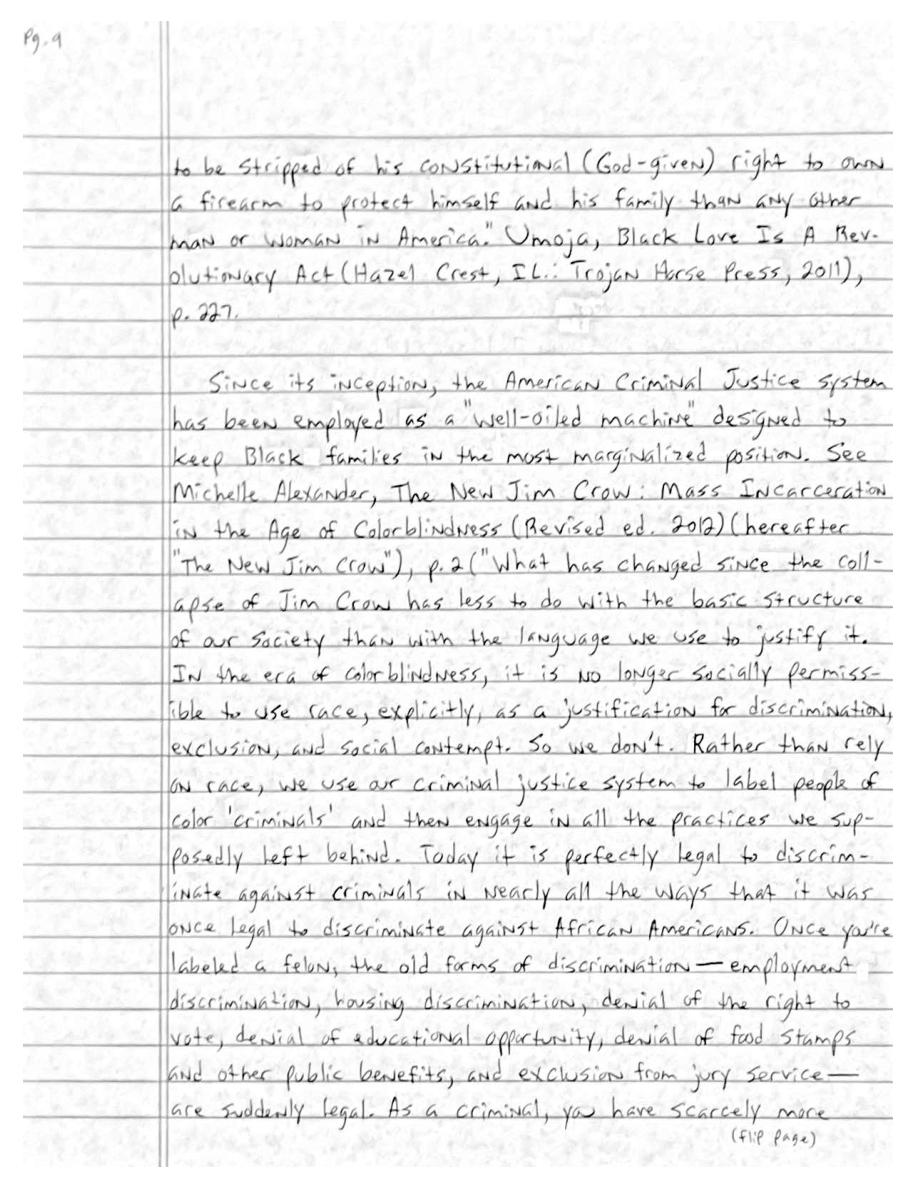 Pg. 9
to be stripped of his constitutional (God-given) right to own
a firearm to protect himself and his family than any other
man or woman in America." Umoja, Black Love Is A Rev-
olutionary Act (Hazel Crest, IL.: Trojan Horse Press, 2011),
p. 227.
Since its inception, the American Criminal Justice system
has been employed as a "well-oiled machine" designed to
keep Black families in the most marginalized position. See
Michelle Alexander, The New Jim Crow: Mass Incarceration
in the Age of Colorblindness (Revised ed. 2012) (hereafter
"The New Jim Crow"), p. 2 ("What has changed since the coll-
apse of Jim Crow has less to do with the basic structure
of our society than with the language we use to justify it.
In the era of colorblindness, it is no longer socially permiss-
ible to use race, explicitly, as a justification for discrimination,
exclusion, and social contempt. So we don't. Rather than rely
on race, we use our criminal justice system to label people of
color 'criminals' and then engage in all the practices we sup-
posedly left behind. Today it is perfectly legal to discrim-
inate against criminals in nearly all the ways that it was
once legal to discriminate against African Americans. Once you're
labeled a felon, the old forms of discrimination — employment
discrimination, housing discrimination, denial of the right to
vote, denial of educational opportunity, denial of food stamps
and other public benefits, and exclusion from jury service —
are suddenly legal. As a criminal, you have scarcely more
(flip page)